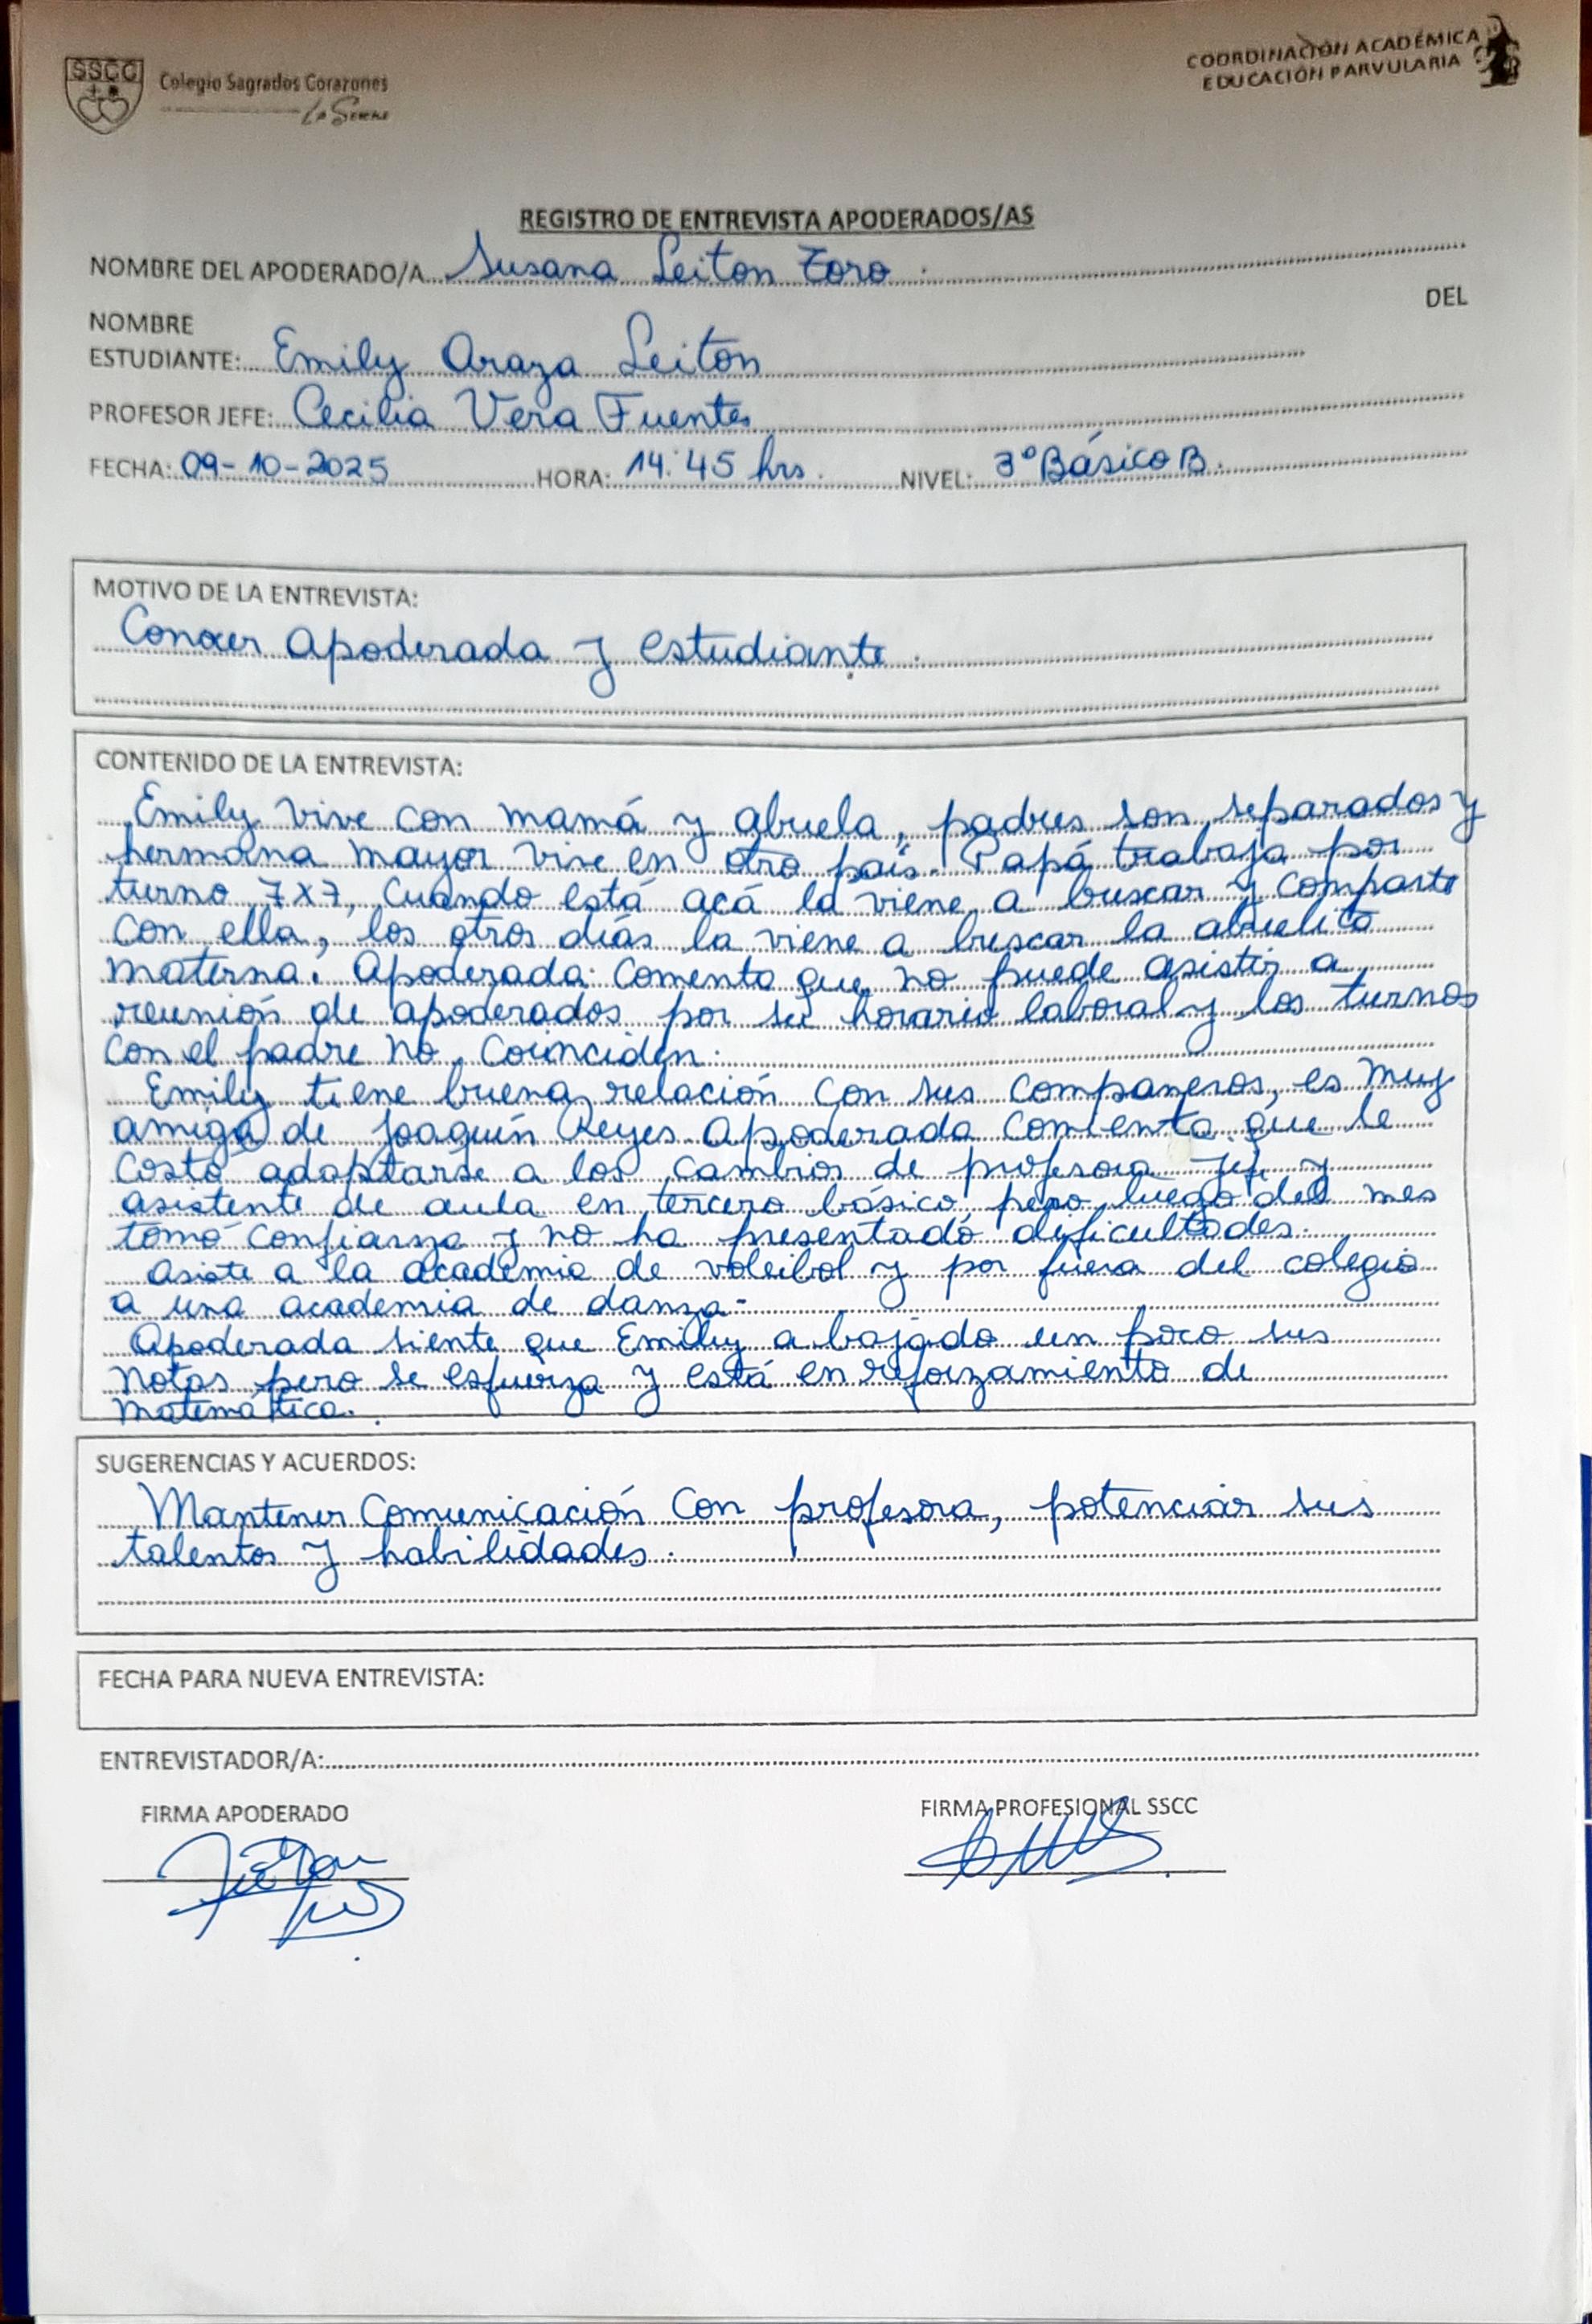 SSCC
Colegio Sagrados Corazones
La Serena
COORDINACIÓN ACADÉMICA
EDUCACIÓN PARVULARIA
REGISTRO DE ENTREVISTA APODERADOS/AS
NOMBRE DEL APODERADO/A Susana Leiton Toro
DEL
NOMBRE
ESTUDIANTE: Emily Araza Leiton
PROFESOR JEFE: Cecilia Vera Fuentes
FECHA: 09-10-2025 HORA: 14:45 hrs. NIVEL: 3° Básico B.
MOTIVO DE LA ENTREVISTA:
Conocer Apoderada y estudiante.
CONTENIDO DE LA ENTREVISTA:
Emily vive con mamá y abuela, padres son separados y
hermana mayor vive en otro país. Papá trabaja por
turno 7x7, Cuando está acá la viene a buscar y comparte
con ella, los otros días la viene a buscar la abuelita
materna. Apoderada comenta que no puede asistir a
reunión de apoderados por su horario laboral y los turnos
con el padre no coinciden.
Emily tiene buena relación con sus compañeros, es muy
amiga de Joaquín Reyes Apoderada comenta que le
costó adaptarse a los cambios de profesora Jefe y
asistente de aula en tercero básico pero luego del mes
tomó confianza y no ha presentado dificultades.
Asiste a la academia de voleibol y por fuera del colegio
a una academia de danza.
Apoderada siente que Emily a bajado un poco sus
notas pero se esfuerza y está en reforzamiento de
matemática.
SUGERENCIAS Y ACUERDOS:
Mantener Comunicación con profesora, potenciar sus
talentos y habilidades.
FECHA PARA NUEVA ENTREVISTA:
ENTREVISTADOR/A:
FIRMA APODERADO FIRMA PROFESIONAL SSCC